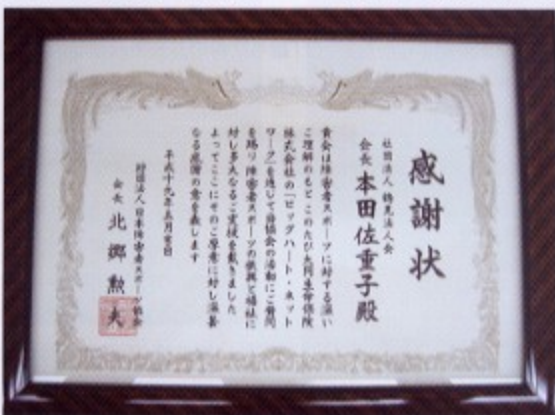 感謝状
社団法人 鶴見法人会
会長 本田佐重子殿
貴会は障害者スポーツに対する深い
ご理解のもとこのたび大同生命保険
株式会社の「ビッグハート・ネット
ワーク」を通じて当協会の活動にご賛同
を賜り障害者スポーツの振興と福祉に
対し多大なるご支援を戴きました
よってここにそのご厚意に対し深甚
なる感謝の意を表します
平成十九年五月吉日
財団法人日本障害者スポーツ協会
会長 北郷勲夫